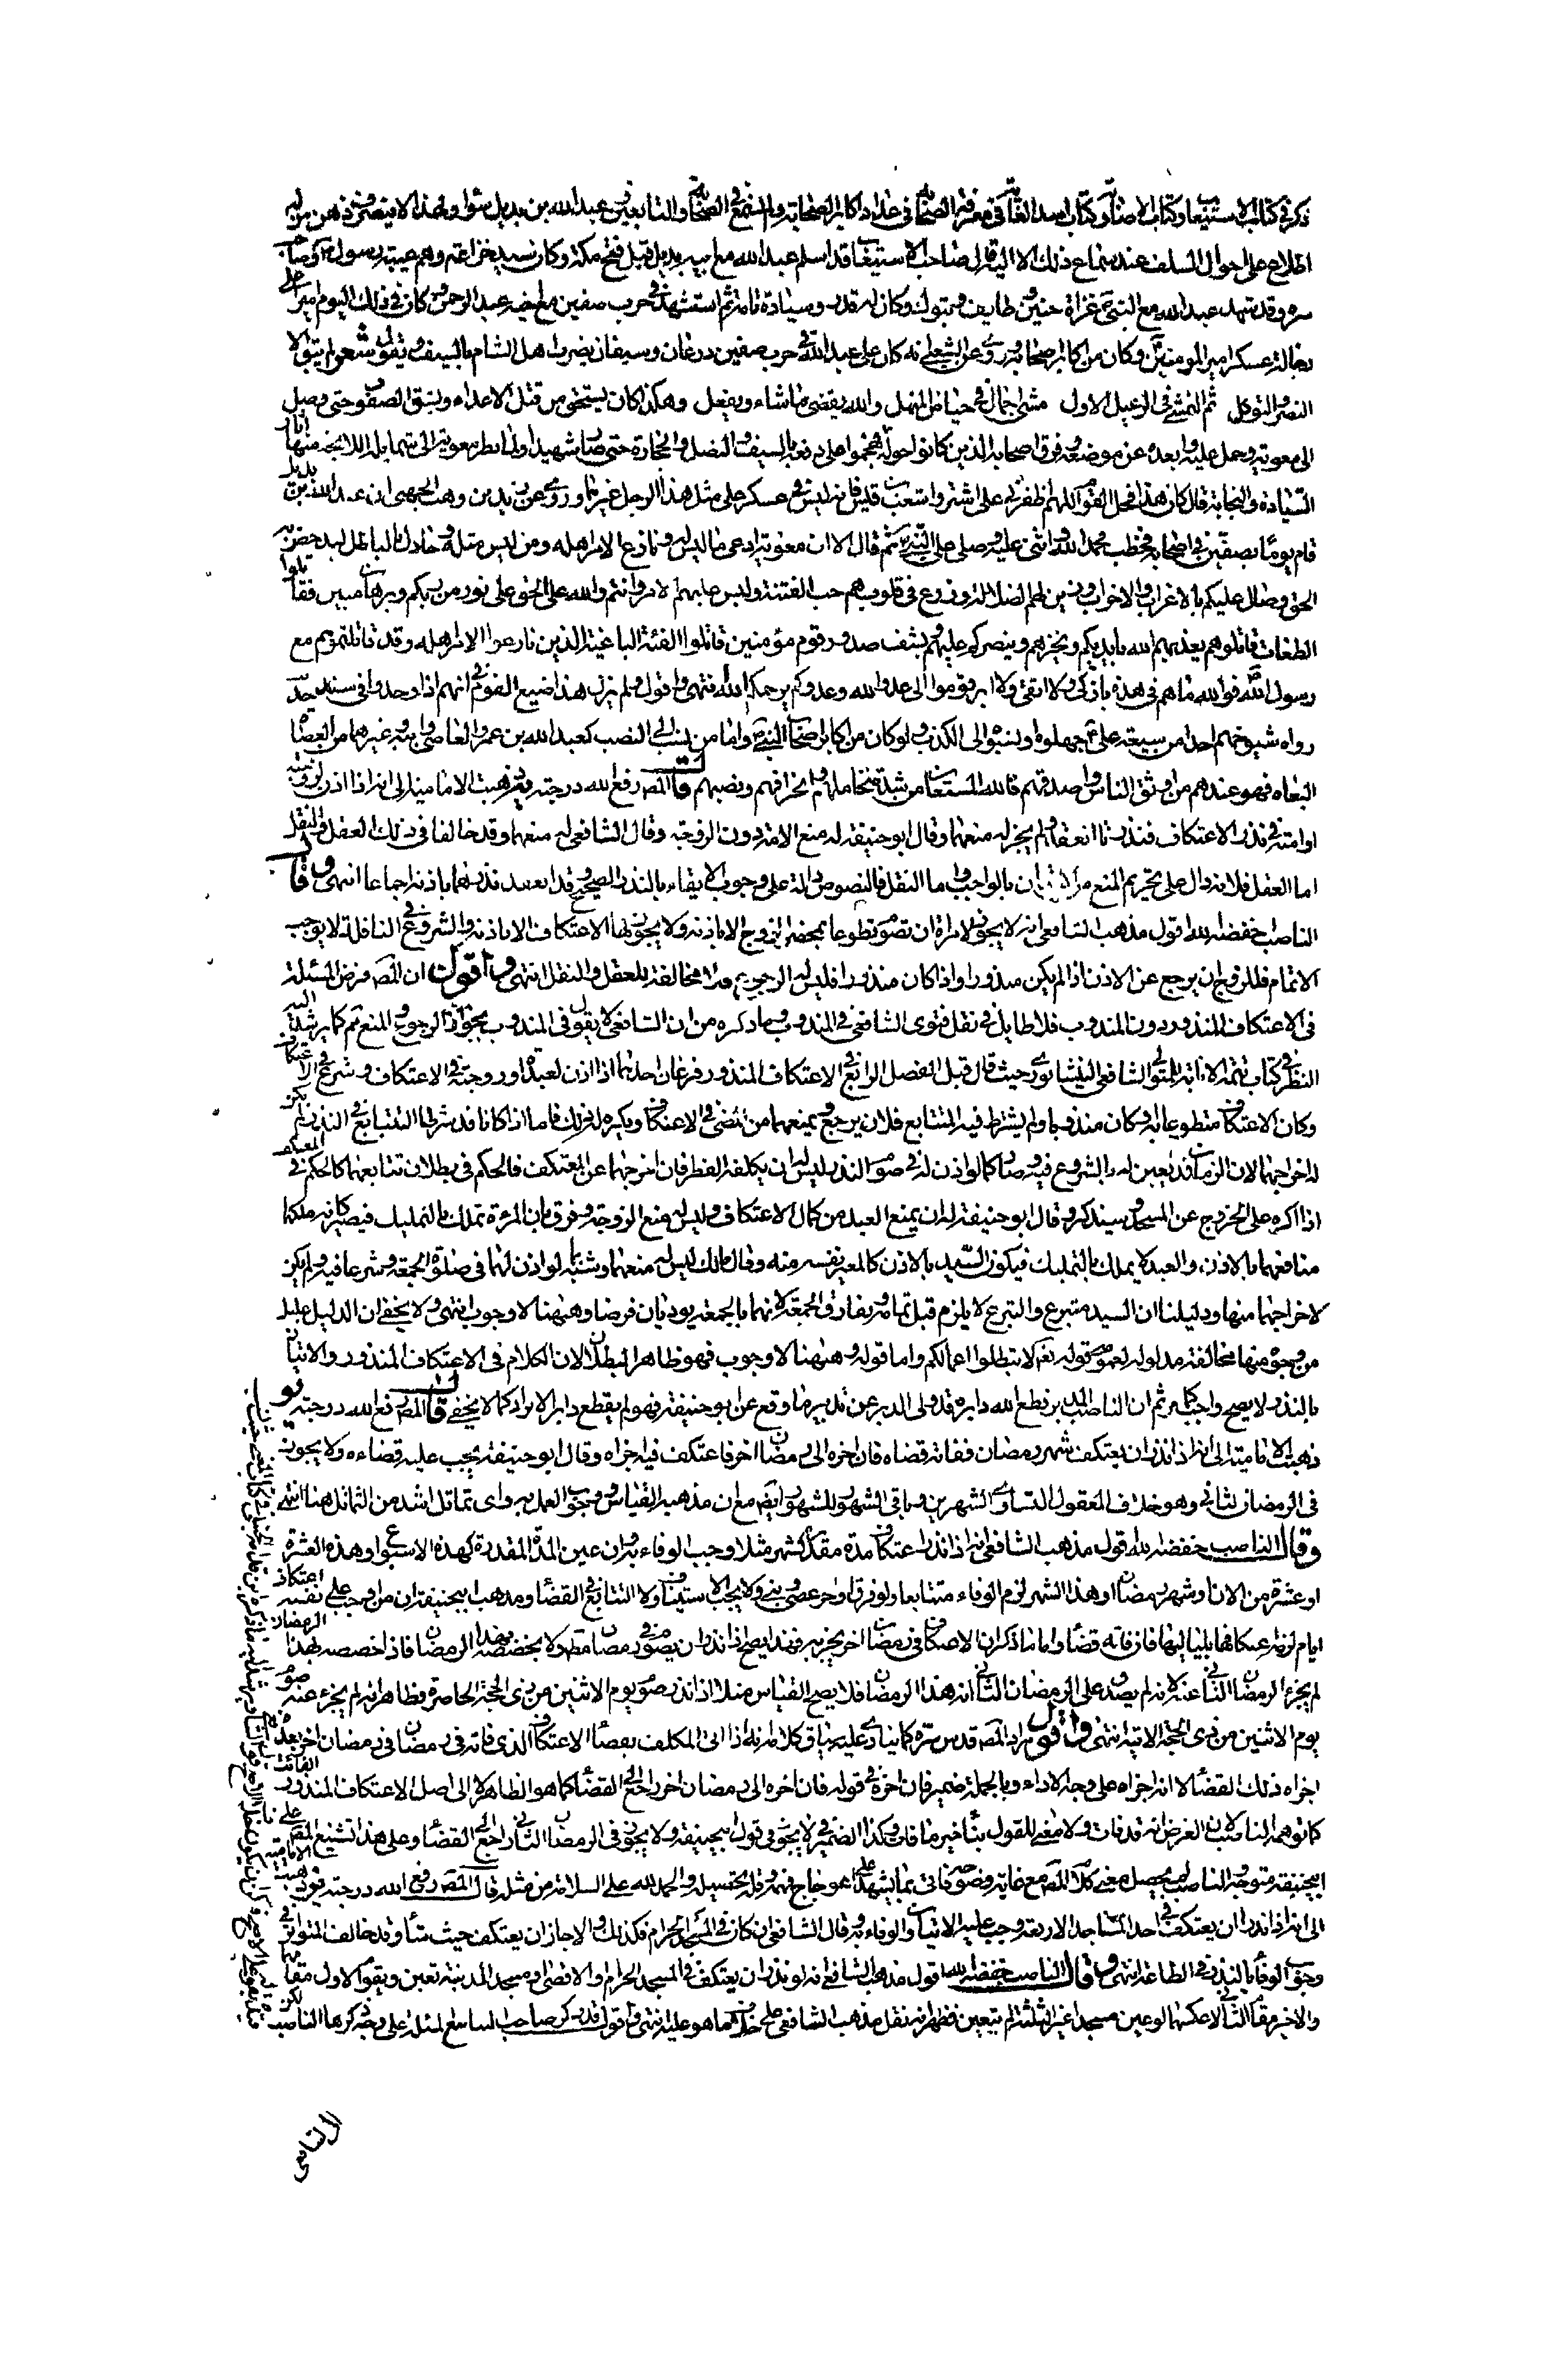 ذكر في كتاب الاستيعاب وكتاب الاصابة وكتاب اسد الغابة في معرفة الصحابة في عداد اكابر الصحابة ولم يسمع في الصحابة والتابعين عبد الله بن بديل سواه ولهذا لا ينصرف ذهن من له
اطلاع على احوال السلف عند سماع ذلك الا اليه قال صاحب الاستيعاب قد اسلم عبد الله مع ابيه بديل قبل فتح مكة وكان سيد خزاعة وهم عيبة رسول الله وصاحب
سره وقد شهد عبد الله مع النبي غزاة حنين وطايف وتبوك وكان له قدر وسيادة تامة ثم استشهد في حرب صفين مع اخيه عبد الرحمن وكان في ذلك اليوم اميرا على
رجالة عسكر امير المؤمنين وكان من اكابر اصحابه وروي عن الشعبي انه كان على عبد الله في حرب صفين درعان وسيفان يضرب اهل الشام بالسيف ويقول شعر لم يبق الا
الصبر والتوكل ثم التمشي في الرعيل الاول مشي الجمال في حياض المنهل والله يقضي ما شاء ويفعل وهكذا كان يستحق من قتل الاعداء ويشق الصفوف حتى وصل
الى معوية وحمل عليه وابعده عن موضعه وفرق اصحابه الذين كانوا حوله فهجموا على دفعه بالسيف والنصل والحجارة حتى صار شهيدا ولما نظر معوية الى شمايله اللايحة منها اثار
السيادة والنجابة قال كان هذا فحل القوم اللهم اظفرني على اشتر واشعث قيس فانه ليس في عسكر علي مثل هذا الرجل غيرهما وروي عن زيد بن وهب الجهني ان عبد الله بن بديل
قام يوما بصفين في اصحابه فخطب فحمد الله واثنى عليه وصلى على النبي ثم قال الا ان معوية ادعى ما ليس له ونازع الامر اهله ومن ليس مثله وجادل بالباطل ليدحض به
الحق وصال عليكم بالاعراب والاحزاب وزين لهم الضلالة وزرع في قلوبهم حب الفتنة ولبس عليهم الامر وانتم والله على الحق على نور من ربكم وبرهان مبين فقاتلوا
الطغاة قاتلوهم يعذبهم الله بايديكم ويخزهم وينصركم عليهم ويشف صدور قوم مؤمنين قاتلوا الفئة الباغية الذين نازعوا الامر اهله وقد قاتلتموهم مع
رسول الله فوالله ما هم في هذه بازكى ولا اتقى ولا ابر قوموا الى عدو الله وعدوكم يرحمكم الله فانتهى واقول لم يزل هذا ضيع القوم في انهم اذا وجدوا في سند حديث
رواه شيوخهم احدا من شيعة علي جهلوه او نسبوه الى الكذب ولو كان من اكابر اصحاب النبي واما من ينسب الى النصب كعبد الله بن عمرو العاص وابيه وغيرهما من العصاة
البغاة فهو عندهم من اوثق الناس واصدقهم فالله المستعان من شدة تحاملهم وانحرافهم ونصبهم قال المصنف رفع الله درجته يز ذهبت الامامية الى انه اذا اذن لزوجته
او امته في نذر الاعتكاف فنذرتا انعقد ولم يجز له منعهما وقال ابو حنيفة له منع الامة دون الزوجة وقال الشافعي له منعهما وقد خالفا في ذلك العقل والنقل
اما العقل فلانه دال على تحريم المنع من الاتيان بالواجب واما النقل فالنصوص دالة على وجوب الايفاء بالنذر الصحيح وقد انعقد نذرهما باذنه اجماعا انتهى وقال
الناصب خفضه الله اقول مذهب الشافعي انه لا يجوز لامراة ان تصوم تطوعا بمحضر الزوج الا باذنه ولا يجوز لها الاعتكاف الا باذنه والشروع في النافلة لا يوجب
الاتمام فللزوج ان يرجع عن الاذن اذا لم يكن منذورا واذا كان منذورا فليس له الرجوع فما مخالفته للعقل والنقل انتهى واقول ان المص فرض المسئلة
في الاعتكاف المنذور دون المندوب فلا طايل في نقل فتوى الشافعي في المندوب وما ذكره من ان الشافعي لا يقول في المندوب بجواز الرجوع والمنع ثم كما يرشد اليه
النظر في كتاب تتمة الابانة للمتولي الشافعي النيشابوري حيث قال قبل الفصل الرابع في الاعتكاف المنذور فرعان احدهما اذا اذن لعبده او زوجته في الاعتكاف وشرع في الاعتكاف
وكان الاعتكاف متطوعا به او كان منذورا ولم يشترط فيه التتابع فله ان يرجع ويمنعهما من المضي في الاعتكاف ويكره له ذلك فاما اذا كانا قد شرطا التتابع في النذر لم يكن
له اخراجهما لان الزمان قد تعين له بالشروع فيه وصار كما لو اذن له في صوم النذر ليس له ان يكلفه الفطر فان اخرجهما عن المعتكف فالحكم في بطلان تتابعهما كالحكم في المعتكف
اذا اكره على الخروج عن المسجد وسيذكر وقال ابو حنيفة له ان يمنع العبد من كمال الاعتكاف وليس له منع الزوجة وفرق بان المرءة تملك بالتمليك فيصير كانه ملكها
منافعها بالاذن والعبد لا يملك بالتمليك فيكون السيد بالاذن كالمعير نفسه منه وقال مالك ليس له منعهما وشبهه بما لو اذن لهما في صلوة الجمعة وشرعا فيه لم يكن
له اخراجهما منها ودليلنا ان السيد متبرع والتبرع لا يلزم قبل تمامه ويفارق الجمعة لانهما بالجمعة يوديان فرضا وههنا لا وجوب انتهى ولا يخفى ان الدليل عليل
من وجوه منها مخالفة مدلوله لعموم قوله تعم لا تبطلوا اعمالكم واما قوله وههنا لا وجوب فهو ظاهر البطلان لان الكلام في الاعتكاف المنذور والاتيان
بالنذر لا يصح واجبا ثم ان الناصب المدبر قطع الله دابره قد ولى الدبر عن تدبير ما وقع عن ابو حنيفة فهو لم يقطع دابر الايراد كما لا يخفى قال المصنف رفع الله درجته يو
ذهبت الامامية الى انه اذا نذر ان يعتكف شهر رمضان ففاته قضاه فان اخره الى رمضان اخر فاعتكف فيه اجزاه وقال ابو حنيفة يجب عليه قضاءه ولا يجوز
في الرمضان الثاني وهو خلاف المعقول لتساوي الشهرين وباقي الشهور للشهور ايضا مع ان مذهبه القياس ووجوب العمل به واي تماثل اشد من التماثل هنا انتهى
وقال الناصب خفضه الله اقول مذهب الشافعي انه اذا نذر اعتكاف مدة مقدرة كشهر مثلا وجب الوفاء به وان عين المدة المقدرة كهذه الاسبوع او هذه العشرة
او عشرة من الان او شهر رمضان او هذا الشهر لزم الوفاء متتابعا ولو فرق او اخر عصى وبنى ولا يجب الاستيناف ولا التتابع في القضاء ومذهب ابيحنيفة ان من اوجب على نفسه اعتكاف
ايام لزمه اعتكافها بلياليها فان فاته قضا واما ما ذكر ان الاعتكاف في رمضان اخر يجزيه فهذا يصح اذا نذر ان يصوم في رمضان مطلقا ولا يخصصه بهذا الرمضان فاذا خصصه بهذا الرمضان
لم يجزء الرمضان الثاني عنه لانه لم يصدق على الرمضان الثاني انه هذا الرمضان فلا يصح القياس مثلا اذا نذر صوم يوم الاثنين من ذي الحجة الحاضرة فظاهر انه لم يجزء عنه صوم
يوم الاثنين من ذي الحجة الاتية انتهى واقول مراد المص قدس سره كما ينادي عليه سياق كلامه انه اذا اتى المكلف بقضاء الاعتكاف الذي فاته في رمضان في رمضان اخر بعده
اجزاه ذلك القضاء لا انه اجزاه على وجه الاداء وبالجملة ضمير فان اخره في قوله فان اخره الى رمضان اخر راجع الى القضاء كما هو الظاهر لا الى اصل الاعتكاف المنذور الفائت
كما توهمه الناصب لان الغرض انه قد فات ولا معنى للقول بتاخير ما فات وكذا الضمير في لا يجوز في قول ابيحنيفة ولا يجوز في الرمضان الثاني راجع الى القضاء وعلى هذا تشنيع المص على
ابيحنيفة متوجه والناصب لم يحصل معنى كلام المص مع غاية وضوحه فاتى بما يشهد على اعوجاج فهمه وقلة تحصيله والحمد لله على السلامة من مثله قال المصنف رفع الله درجته يز ذهبت الامامية
الى انه اذا نذر ان يعتكف في احد المساجد الاربعة وجب عليه الاتيان والوفاء به وقال الشافعي ان كان في المسجد الحرام فكذلك والا جاز ان يعتكف حيث شاء وقد خالف المتواتر في
وجوب الوفاء بالنذر في الطاعة انتهى وقال الناصب خفضه الله اقول مذهب الشافعي انه لو نذر ان يعتكف في المسجد الحرام او الاقصى او مسجد المدينة تعين ويقوم الاول مقامهما
والاخير مقام الثاني لا عكسهما ولو عين مسجدا غير الثلثة لم يتعين فظهر انه نقل مذهب الشافعي على خلاف ما هو عليه انتهى واقول قد ذكر صاحب الينابيع المسئلة على وجه ذكرها الناصب لكن
الشافعي